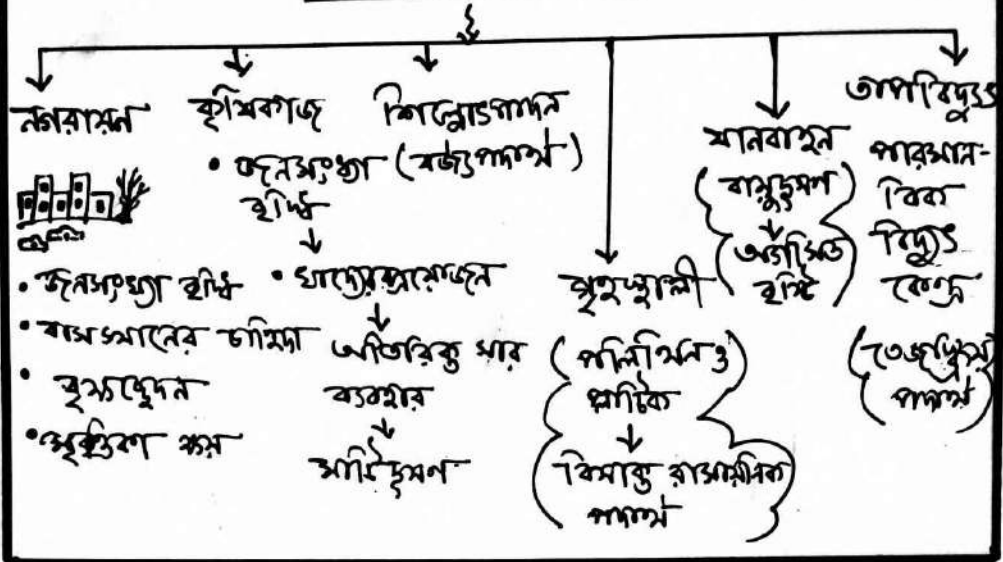 নগরায়ন
• জনসংখ্যা বৃদ্ধি
• বাসস্থানের চাহিদা
• বৃক্ষচ্ছেদন
• মৃত্তিকা ক্ষয়
কৃষিকাজ
• জনসংখ্যা
বৃদ্ধি
• খাদ্যের প্রয়োজন
অতিরিক্ত সার
ব্যবহার
মাটিদূষণ
শিল্পোৎপাদন
(বর্জ্যপদার্থ)
গৃহস্থালী
(পলিথিন ও
প্লাস্টিক
বিষাক্ত রাসায়নিক
পদার্থ)
যানবাহন
(বায়ুদূষণ
অ্যাসিড
বৃষ্টি)
তাপবিদ্যুৎ
পারমান-
বিক
বিদ্যুৎ
কেন্দ্র
(তেজস্ক্রিয়
পদার্থ)